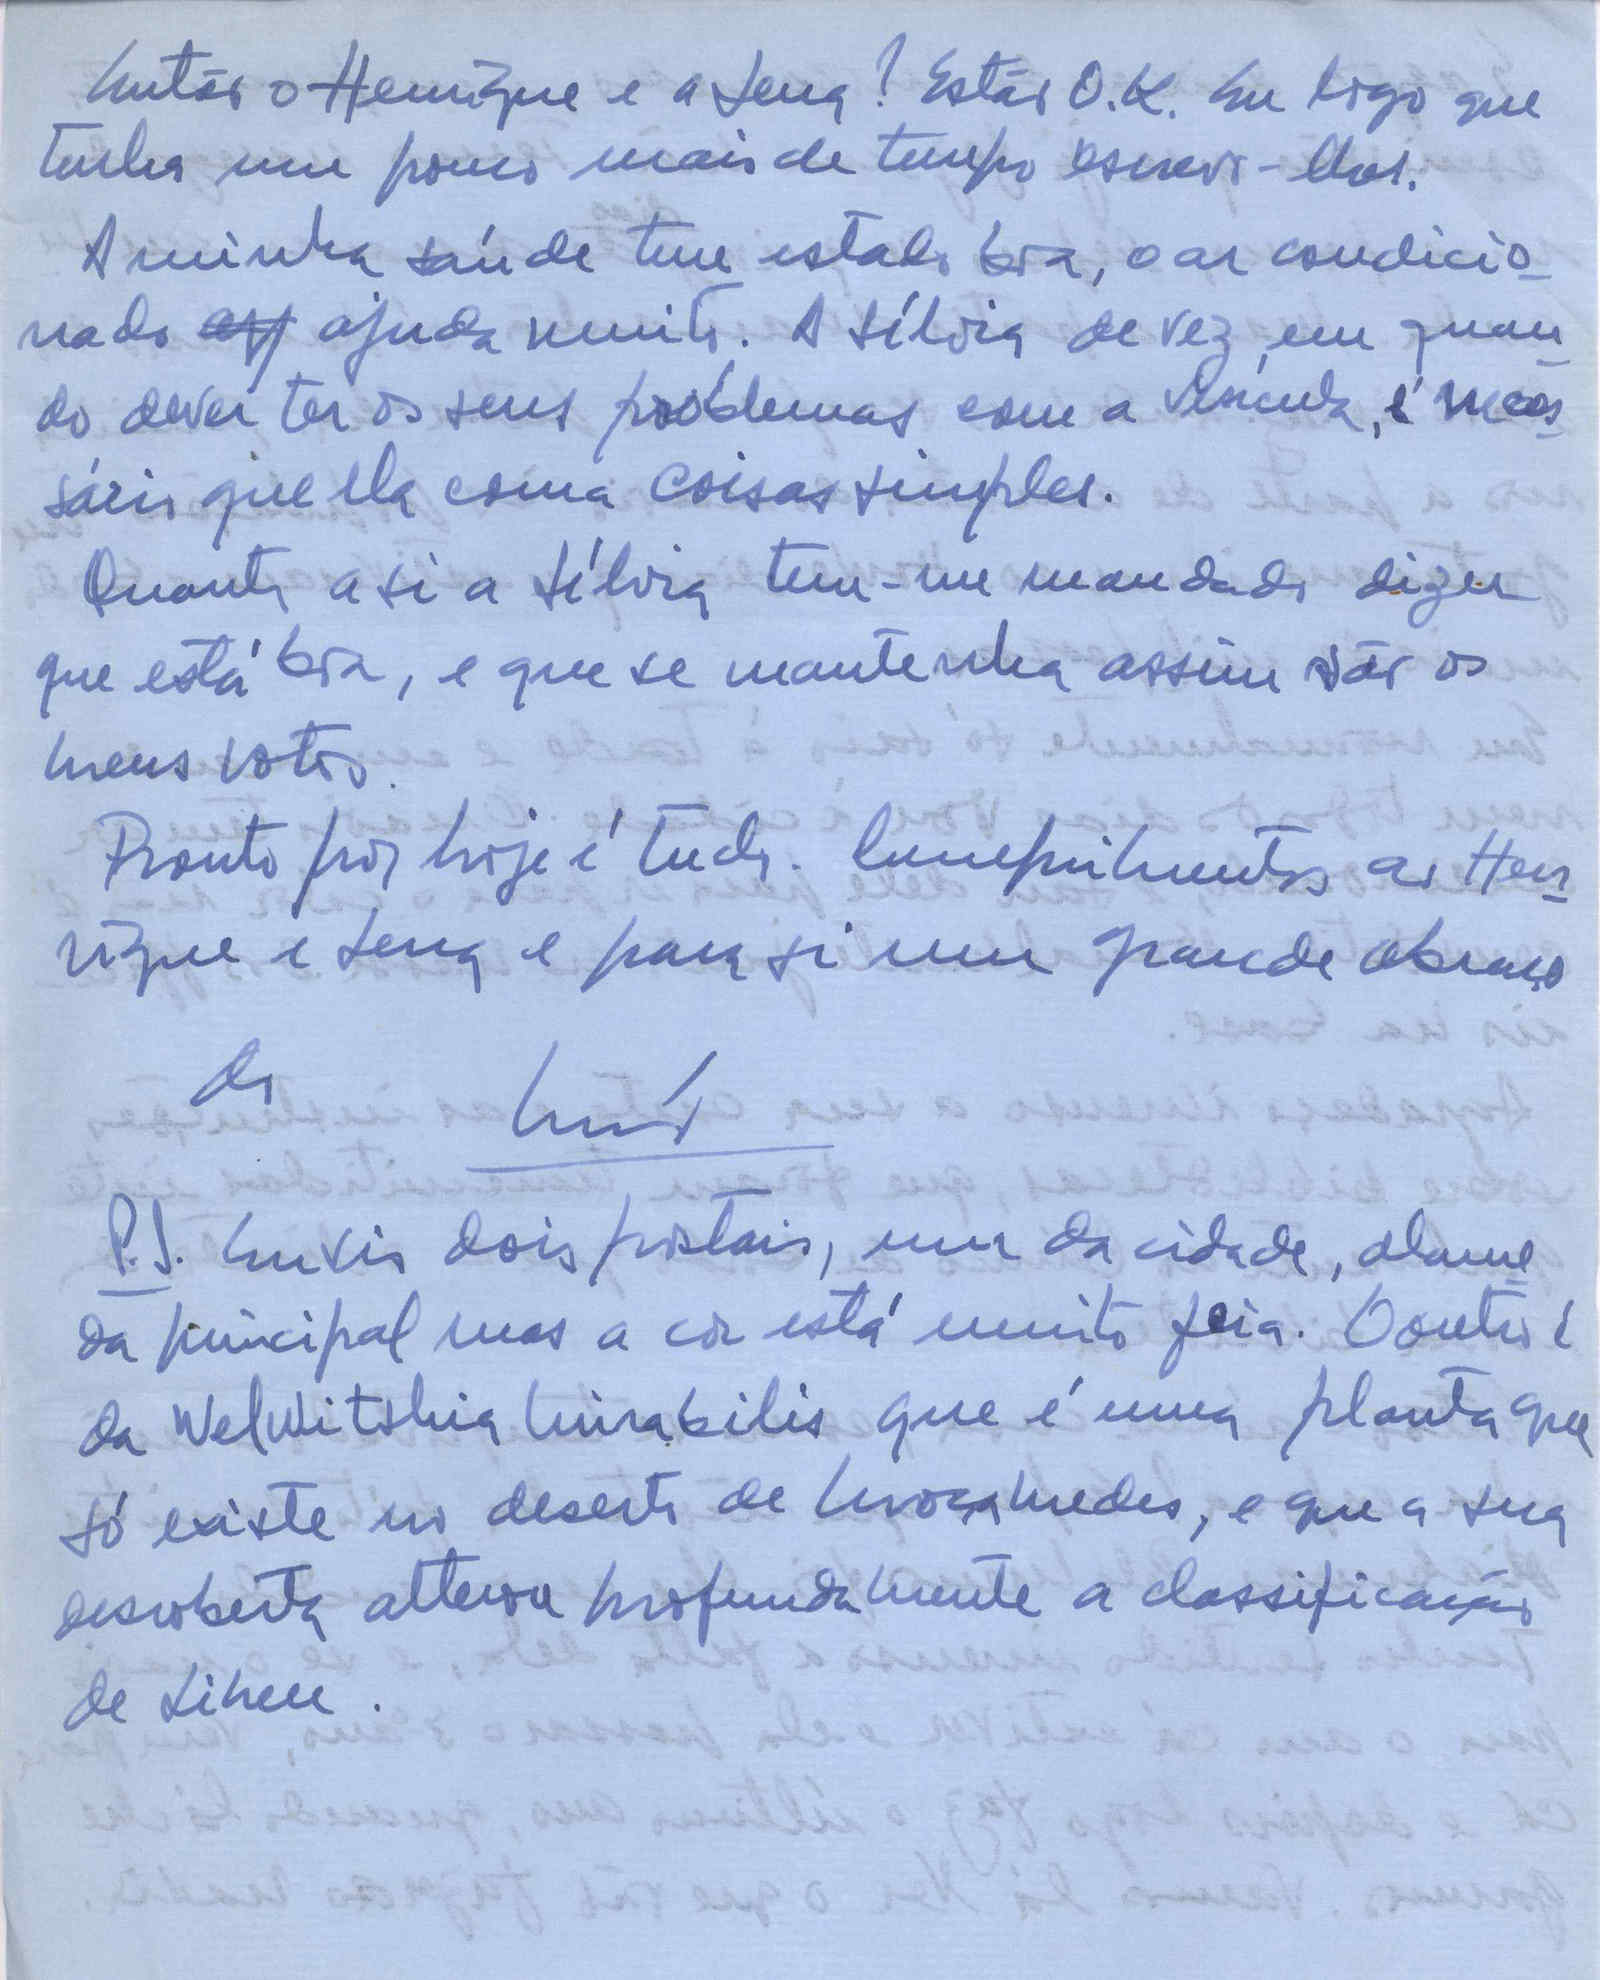 Então o Henrique e a Lena? Estão O.K. Eu logo que
tenha um pouco mais de tempo escrevo-lhes.
A minha saúde tem estado boa, o ar condicio-
nado ajuda muito. A Sílvia de vez em quan-
do deve ter os seus problemas com a vesícula, é neces-
sário que ela coma coisas simples.
Quanto a si a Sílvia tem-me mandado dizer
que está boa, e que se mantenha assim são os
meus votos.
Pronto por hoje é tudo. Cumprimentos ao Hen-
rique e Lena e para si um grande abraço
do
P.S. Envio dois postais, um da cidade, alame-
da principal mas a cor está muito feia. O outro é
da Welwitshia Mirabilis que é uma planta que
só existe no deserto de Moçamedes, e que a sua
descoberta alterou profundamente a classificação
de Lineu.